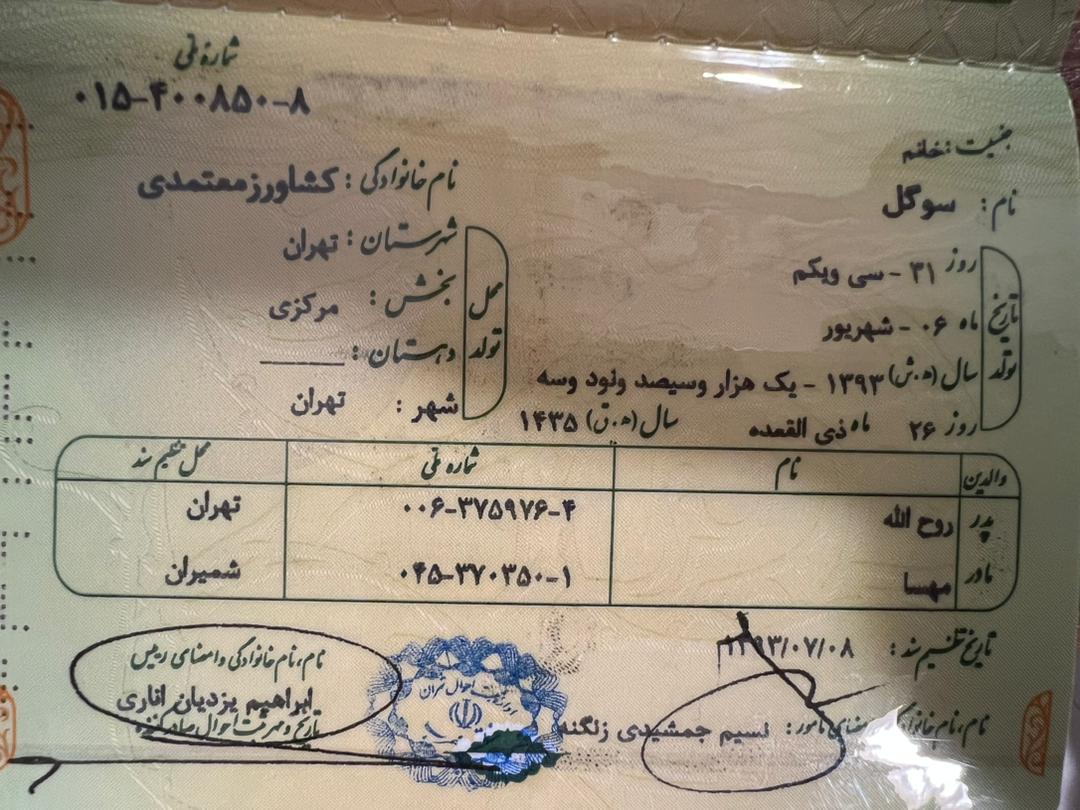 شماره ملی
۰۱۵-۴۰۰۸۵۰-۸
جنسیت: خانم
نام: سوگل
نام خانوادگی: کشاورزمعتمدی
تاریخ تولد
روز ۳۱ - سی ویکم
ماه ۰۶ - شهریور
سال (ه.ش) ۱۳۹۳ - یک هزار وسیصد ونود وسه
روز ۲۶ ماه ذی القعده سال (ه.ق) ۱۴۳۵
محل تولد
شهرستان: تهران
بخش: مرکزی
دهستان:
شهر: تهران
والدین نام شماره ملی محل تنظیم سند
پدر روح الله ۰۰۶-۳۷۵۹۷۶-۴ تهران
مادر مهسا ۰۴۵-۳۷۰۳۵۰-۱ شمیران
تاریخ تنظیم سند: ۱۳۹۳/۰۷/۰۸
نام، نام خانوادگی و امضای مامور: نسیم جمشیدی زلگنه
نام، نام خانوادگی و امضای رییس
ابراهیم یزدیان اناری
تاریخ و مهر ثبت احوال صادر کننده